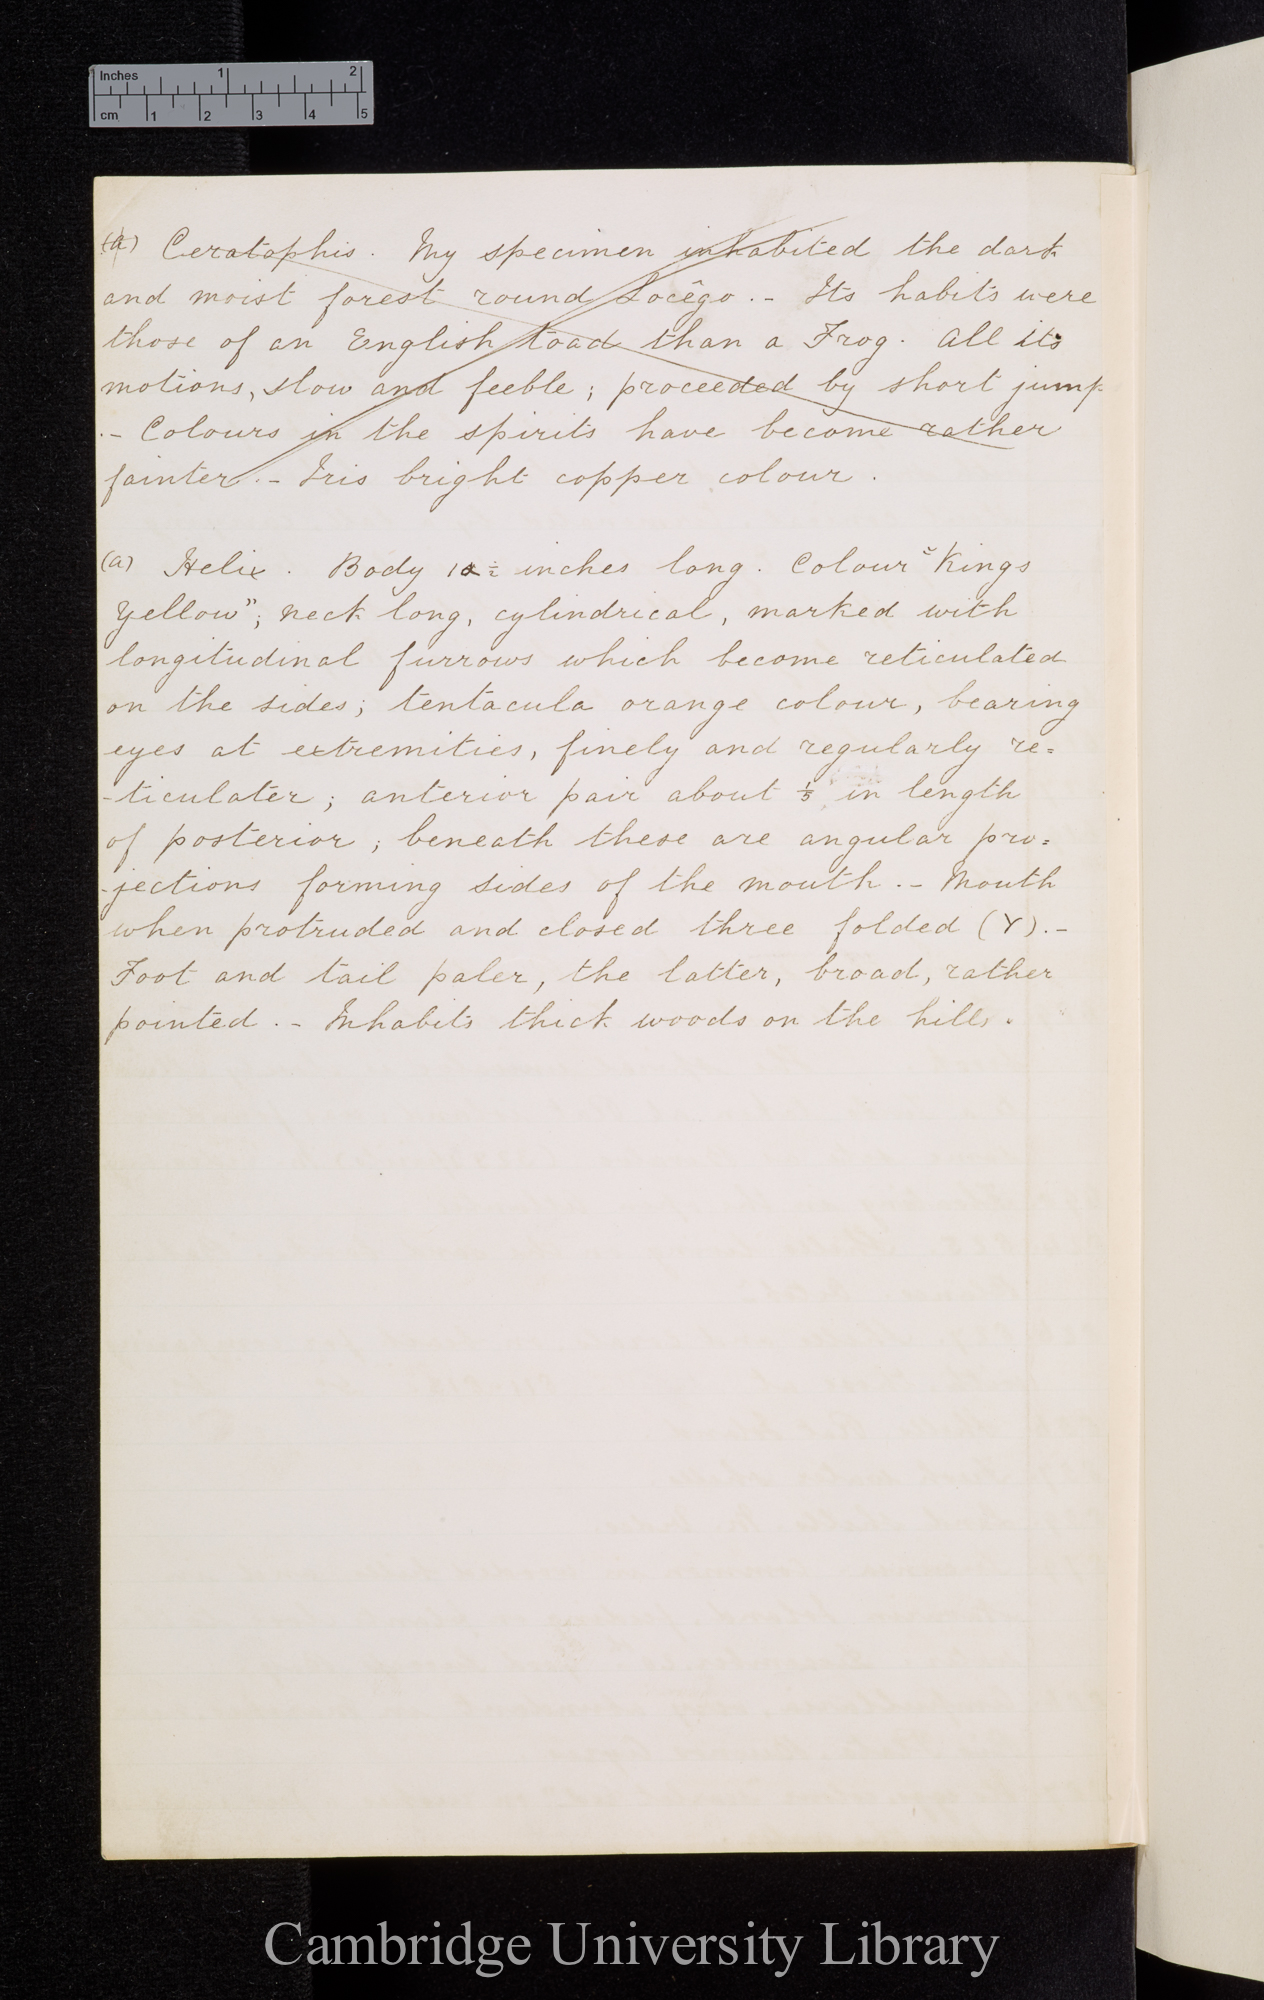 Inches 1 2
cm 1 2 3 4 5
(a) Ceratophis. My specimen inhabited the dark
and moist forest round Socêgo. - Its habits were
those of an English toad than a Frog. All its
motions, slow and feeble; proceeded by short jump
.- Colours in the spirits have become rather
fainter. - Iris bright copper colour.
(a) Helix. Body 1 ½ inches long. Colour "Kings
Yellow"; neck long, cylindrical, marked with
longitudinal furrows which become reticulated
on the sides; tentacula orange colour, bearing
eyes at extremities, finely and regularly re=
-ticulater; anterior pair about ⅕ in length
of posterior; beneath these are angular pro=
-jections forming sides of the mouth. - Mouth
when protruded and closed three folded (Y). -
Foot and tail paler, the latter, broad, rather
pointed. - Inhabits thick woods on the hills.
Cambridge University Library